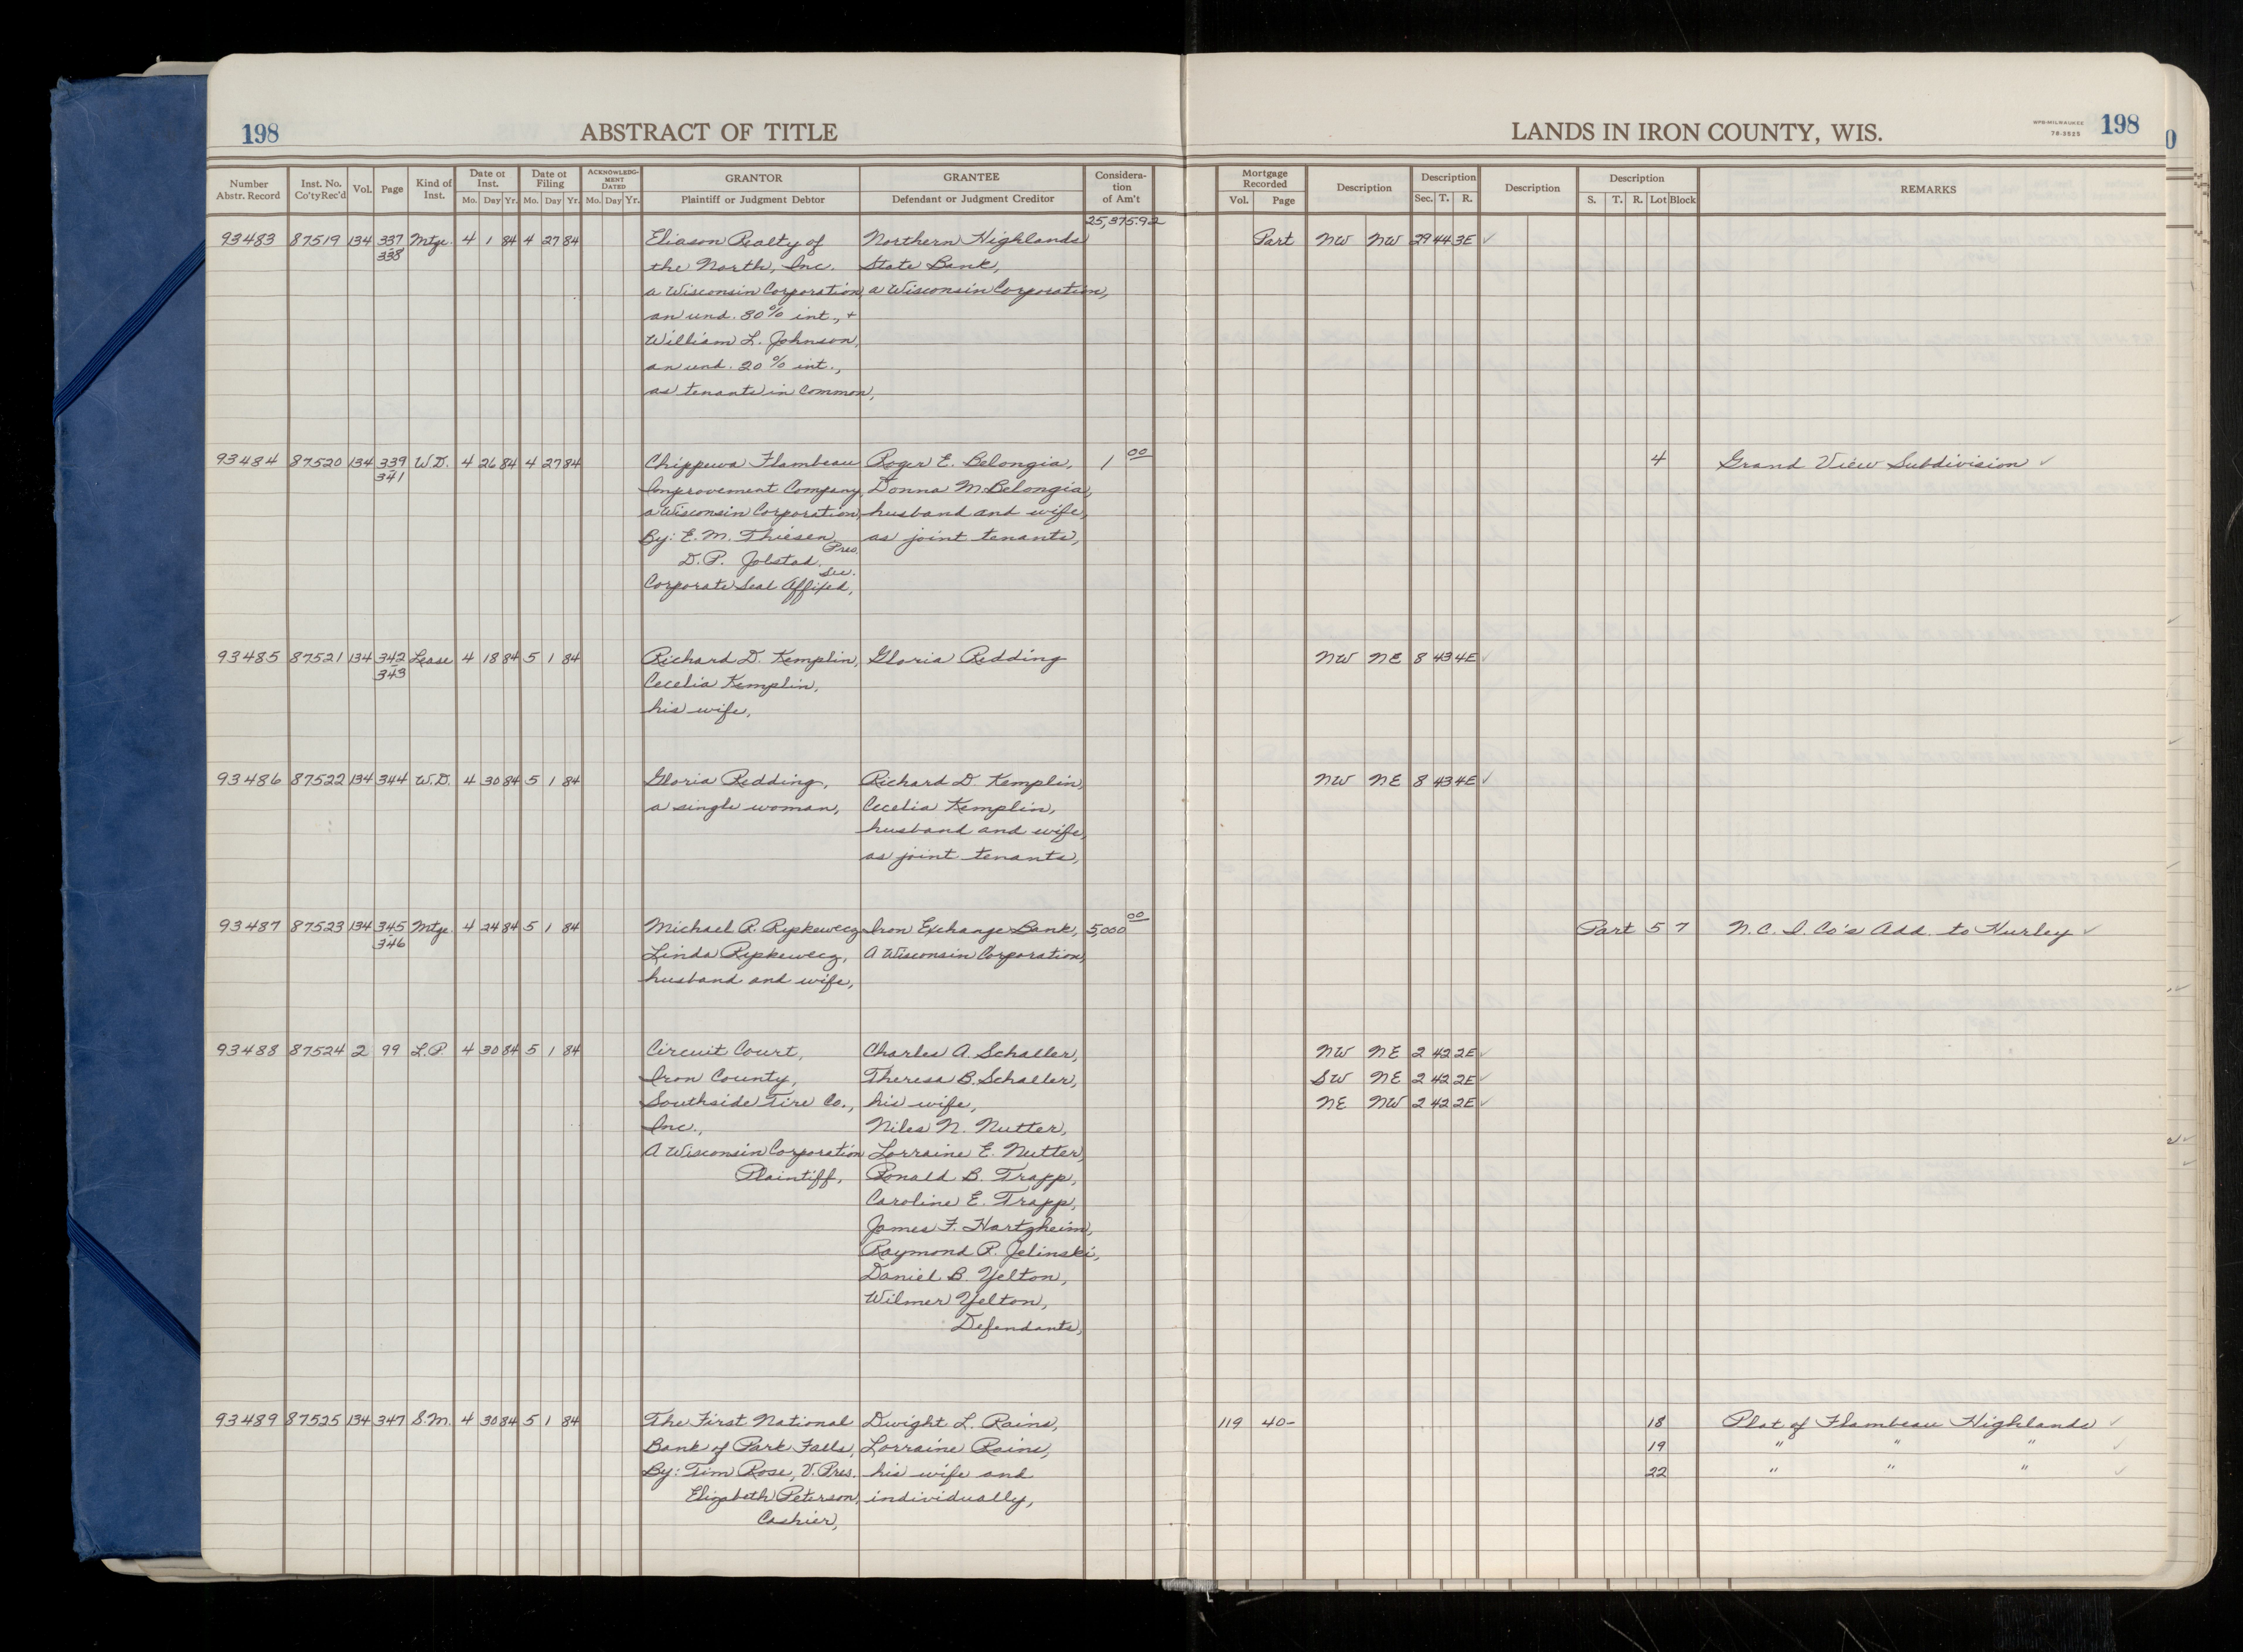 198 ABSTRACT OF TITLE LANDS IN IRON COUNTY, WIS. WPB-MILWAUKEE 78-3525 198
Number Abstr. Record Inst. No. Co'ty Rec'd Vol. Page Kind of Inst. Date of Inst. Mo. Day Yr. Date of Filing Mo. Day Yr. ACKNOWLEDGMENT DATED Mo. Day Yr. GRANTOR Plaintiff or Judgment Debtor GRANTEE Defendant or Judgment Creditor Consideration of Am't Mortgage Recorded Vol. Page Description Description Sec. T. R. Description Description S. T. R. Lot Block REMARKS
25,375.92
93483 87519 134 337 Mtge. 4 1 84 4 27 84 Eliason Realty of Northern Highlands Part NW NW 29 44 3E ✓
338 the North, Inc. State Bank,
a Wisconsin Corporation, a Wisconsin Corporation,
an und. 80% int., +
William L. Johnson,
an und. 20% int.,
as tenants in common,
93484 87520 134 339 W.D. 4 26 84 4 27 84 Chippewa Flambeau Roger E. Belongia, 1 00 4 Grand View Subdivision ✓
341 Improvement Company, Donna M. Belongia,
a Wisconsin Corporation, husband and wife,
By: E. M. Thiesen, Pres. as joint tenants,
D. P. Jolstad, Sec.
Corporate Seal Affixed,
93485 87521 134 342 Lease 4 18 84 5 1 84 Richard D. Kemplin, Gloria Redding NW NE 8 43 4E ✓
343 Cecelia Kemplin,
his wife,
93486 87522 134 344 W.D. 4 30 84 5 1 84 Gloria Redding, Richard D. Kemplin, NW NE 8 43 4E ✓
a single woman, Cecelia Kemplin,
husband and wife,
as joint tenants,
93487 87523 134 345 Mtge. 4 24 84 5 1 84 Michael R. Rypkewecz Iron Exchange Bank, 5,000 00 Part 5 7 N.C.I. Co's Add. to Hurley ✓
346 Linda Rypkewecz, A Wisconsin Corporation,
husband and wife,
93488 87524 2 99 L.P. 4 30 84 5 1 84 Circuit Court, Charles A. Schaller, NW NE 2 42 2E ✓
Iron County, Theresa B. Schaller, SW NE 2 42 2E ✓
Southside Tire Co., his wife, NE NW 2 42 2E ✓
Inc., Niles N. Nutter,
A Wisconsin Corporation Lorraine E. Nutter,
Plaintiff, Ronald B. Trapp,
Caroline E. Trapp,
James F. Hartzheim,
Raymond R. Jelinski,
Daniel B. Yelton,
Wilmer Yelton,
Defendants,
93489 87525 134 347 S.M. 4 30 84 5 1 84 The First National Dwight L. Rains, 119 40- 18 Plat of Flambeau Highlands ✓
Bank of Park Falls, Lorraine Rains, 19 " " " ✓
By: Tim Rose, V. Pres. his wife and 22 " " " ✓
Elizabeth Peterson, individually,
Cashier,